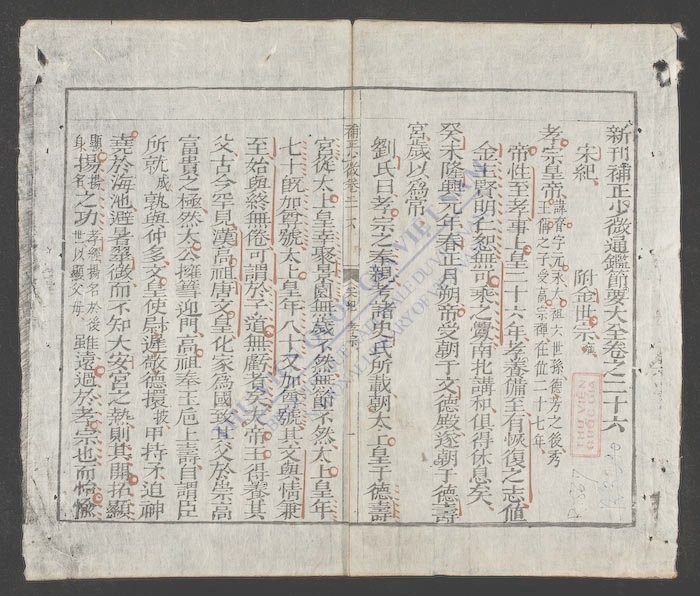 新刊補正少微通鑑節要大全卷之二十六
宋紀 附金世宗
孝宗皇帝 諱昚字元永太祖六世孫德芳之後秀王偁之子受高宗禪在位二十七年
帝性至孝事上皇二十六年孝養備至有恢復之志値
金主賢明仁恕無可乘之釁南北講和俱得休息矣
癸未隆興元年春正月朔帝受朝于文德殿遂朝于德壽
宮歲以爲常
劉氏曰孝宗之奉親考諸史氏所載朝太上皇于德壽
補正少微卷二十六
宮從太上皇幸聚景園無歲不然無節不然太上皇年
七十旣加尊號太上皇年八十又加尊號其文與情兼
至始與終無倦可謂於子道無虧者矣大帝王得養其
父古今罕見漢高祖唐文皇化家爲國致其父於崇高
富貴之極然太公擁篲迎門高祖奉玉卮上壽自謂臣
所就成孰與仲多文皇使尉遲敬德擐披甲持矛迫神
堯於海池避暑翠微而不知大安宮之熱則其開拓顯
顯揚身揚名之功 孝經揚名於後世以顯父母 雖遠過於孝宗也而怡愉
THƯ VIỆN
QUỐC GIA
R.337